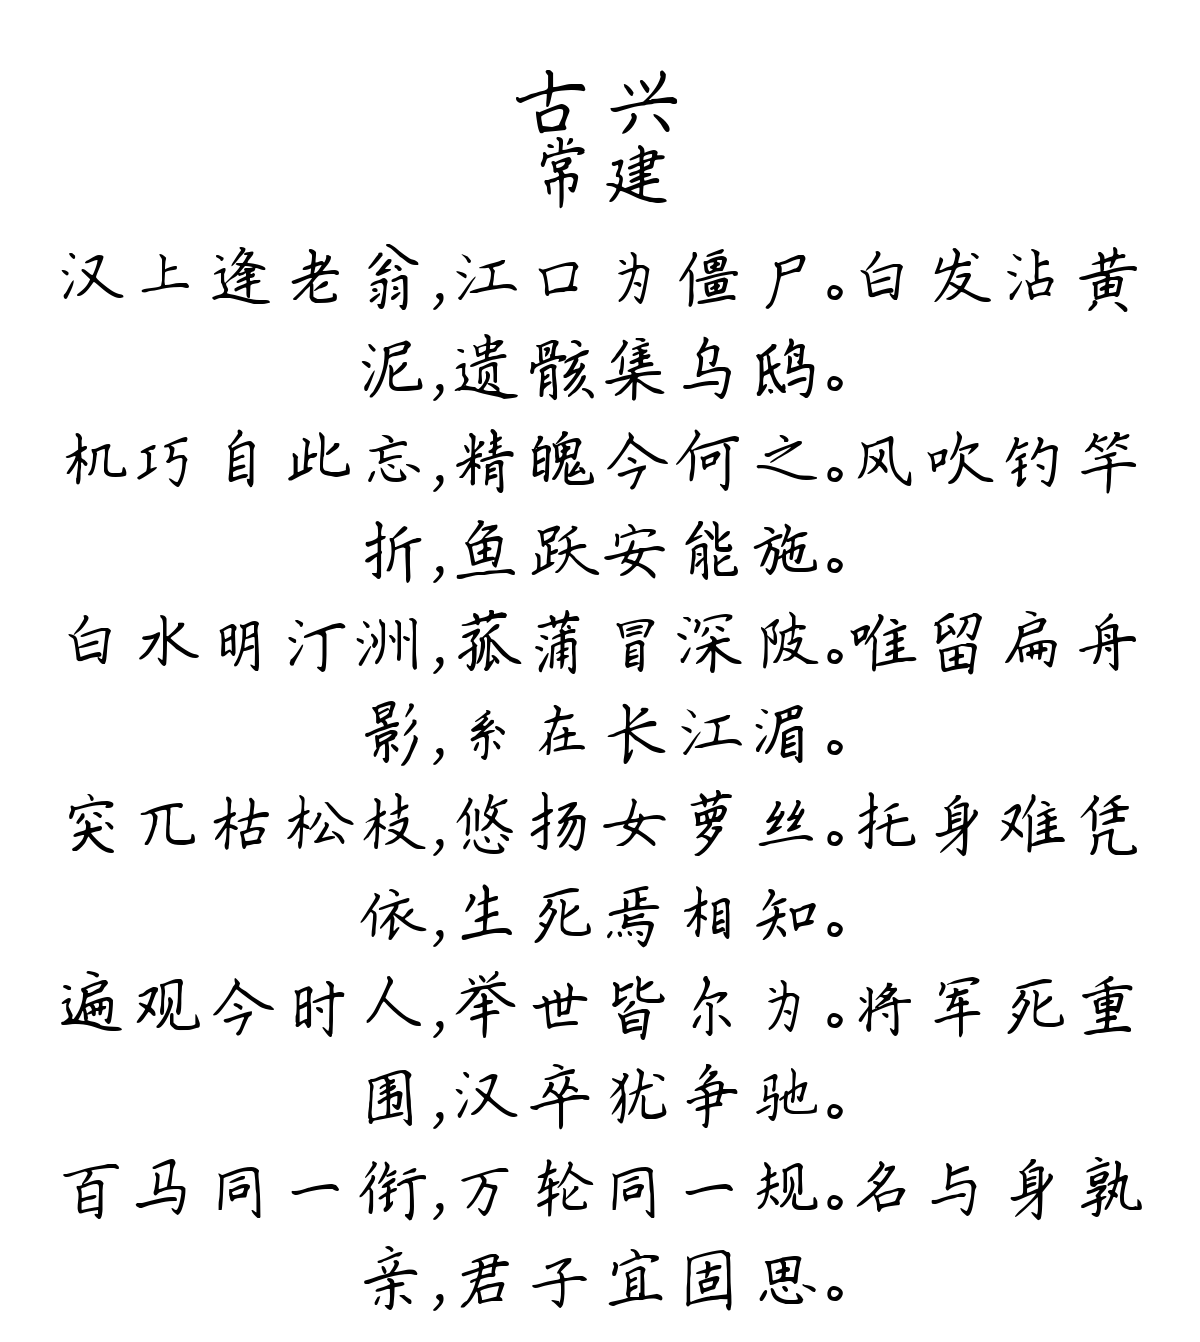 古兴
常建
汉上逢老翁,江口为僵尸。白发沾黄
泥,遗骸集乌鸱。
机巧自此忘,精魄今何之。风吹钓竿
折,鱼跃安能施。
白水明汀洲,菰蒲冒深陂。唯留扁舟
影,系在长江湄。
突兀枯松枝,悠扬女萝丝。托身难凭
依,生死焉相知。
遍观今时人,举世皆尔为。将军死重
围,汉卒犹争驰。
百马同一衔,万轮同一规。名与身孰
亲,君子宜固思。